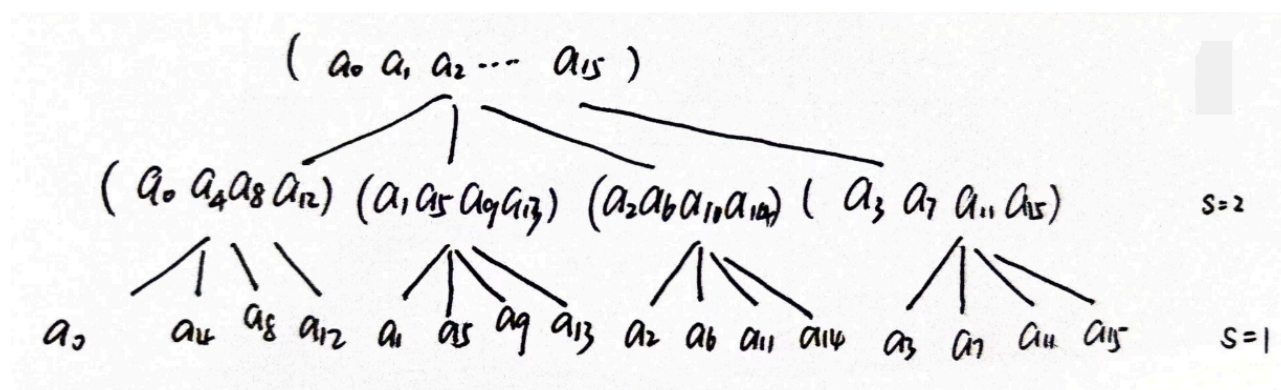 ( a₀ a₁ a₂ ... a₁₅ )
( a₀ a₄ a₈ a₁₂) (a₁ a₅ a₉ a₁₃) (a₂ a₆ a₁₀ a₁₄) ( a₃ a₇ a₁₁ a₁₅) s=2
a₀ a₄ a₈ a₁₂ a₁ a₅ a₉ a₁₃ a₂ a₆ a₁₁ a₁₄ a₃ a₇ a₁₁ a₁₅ s=1